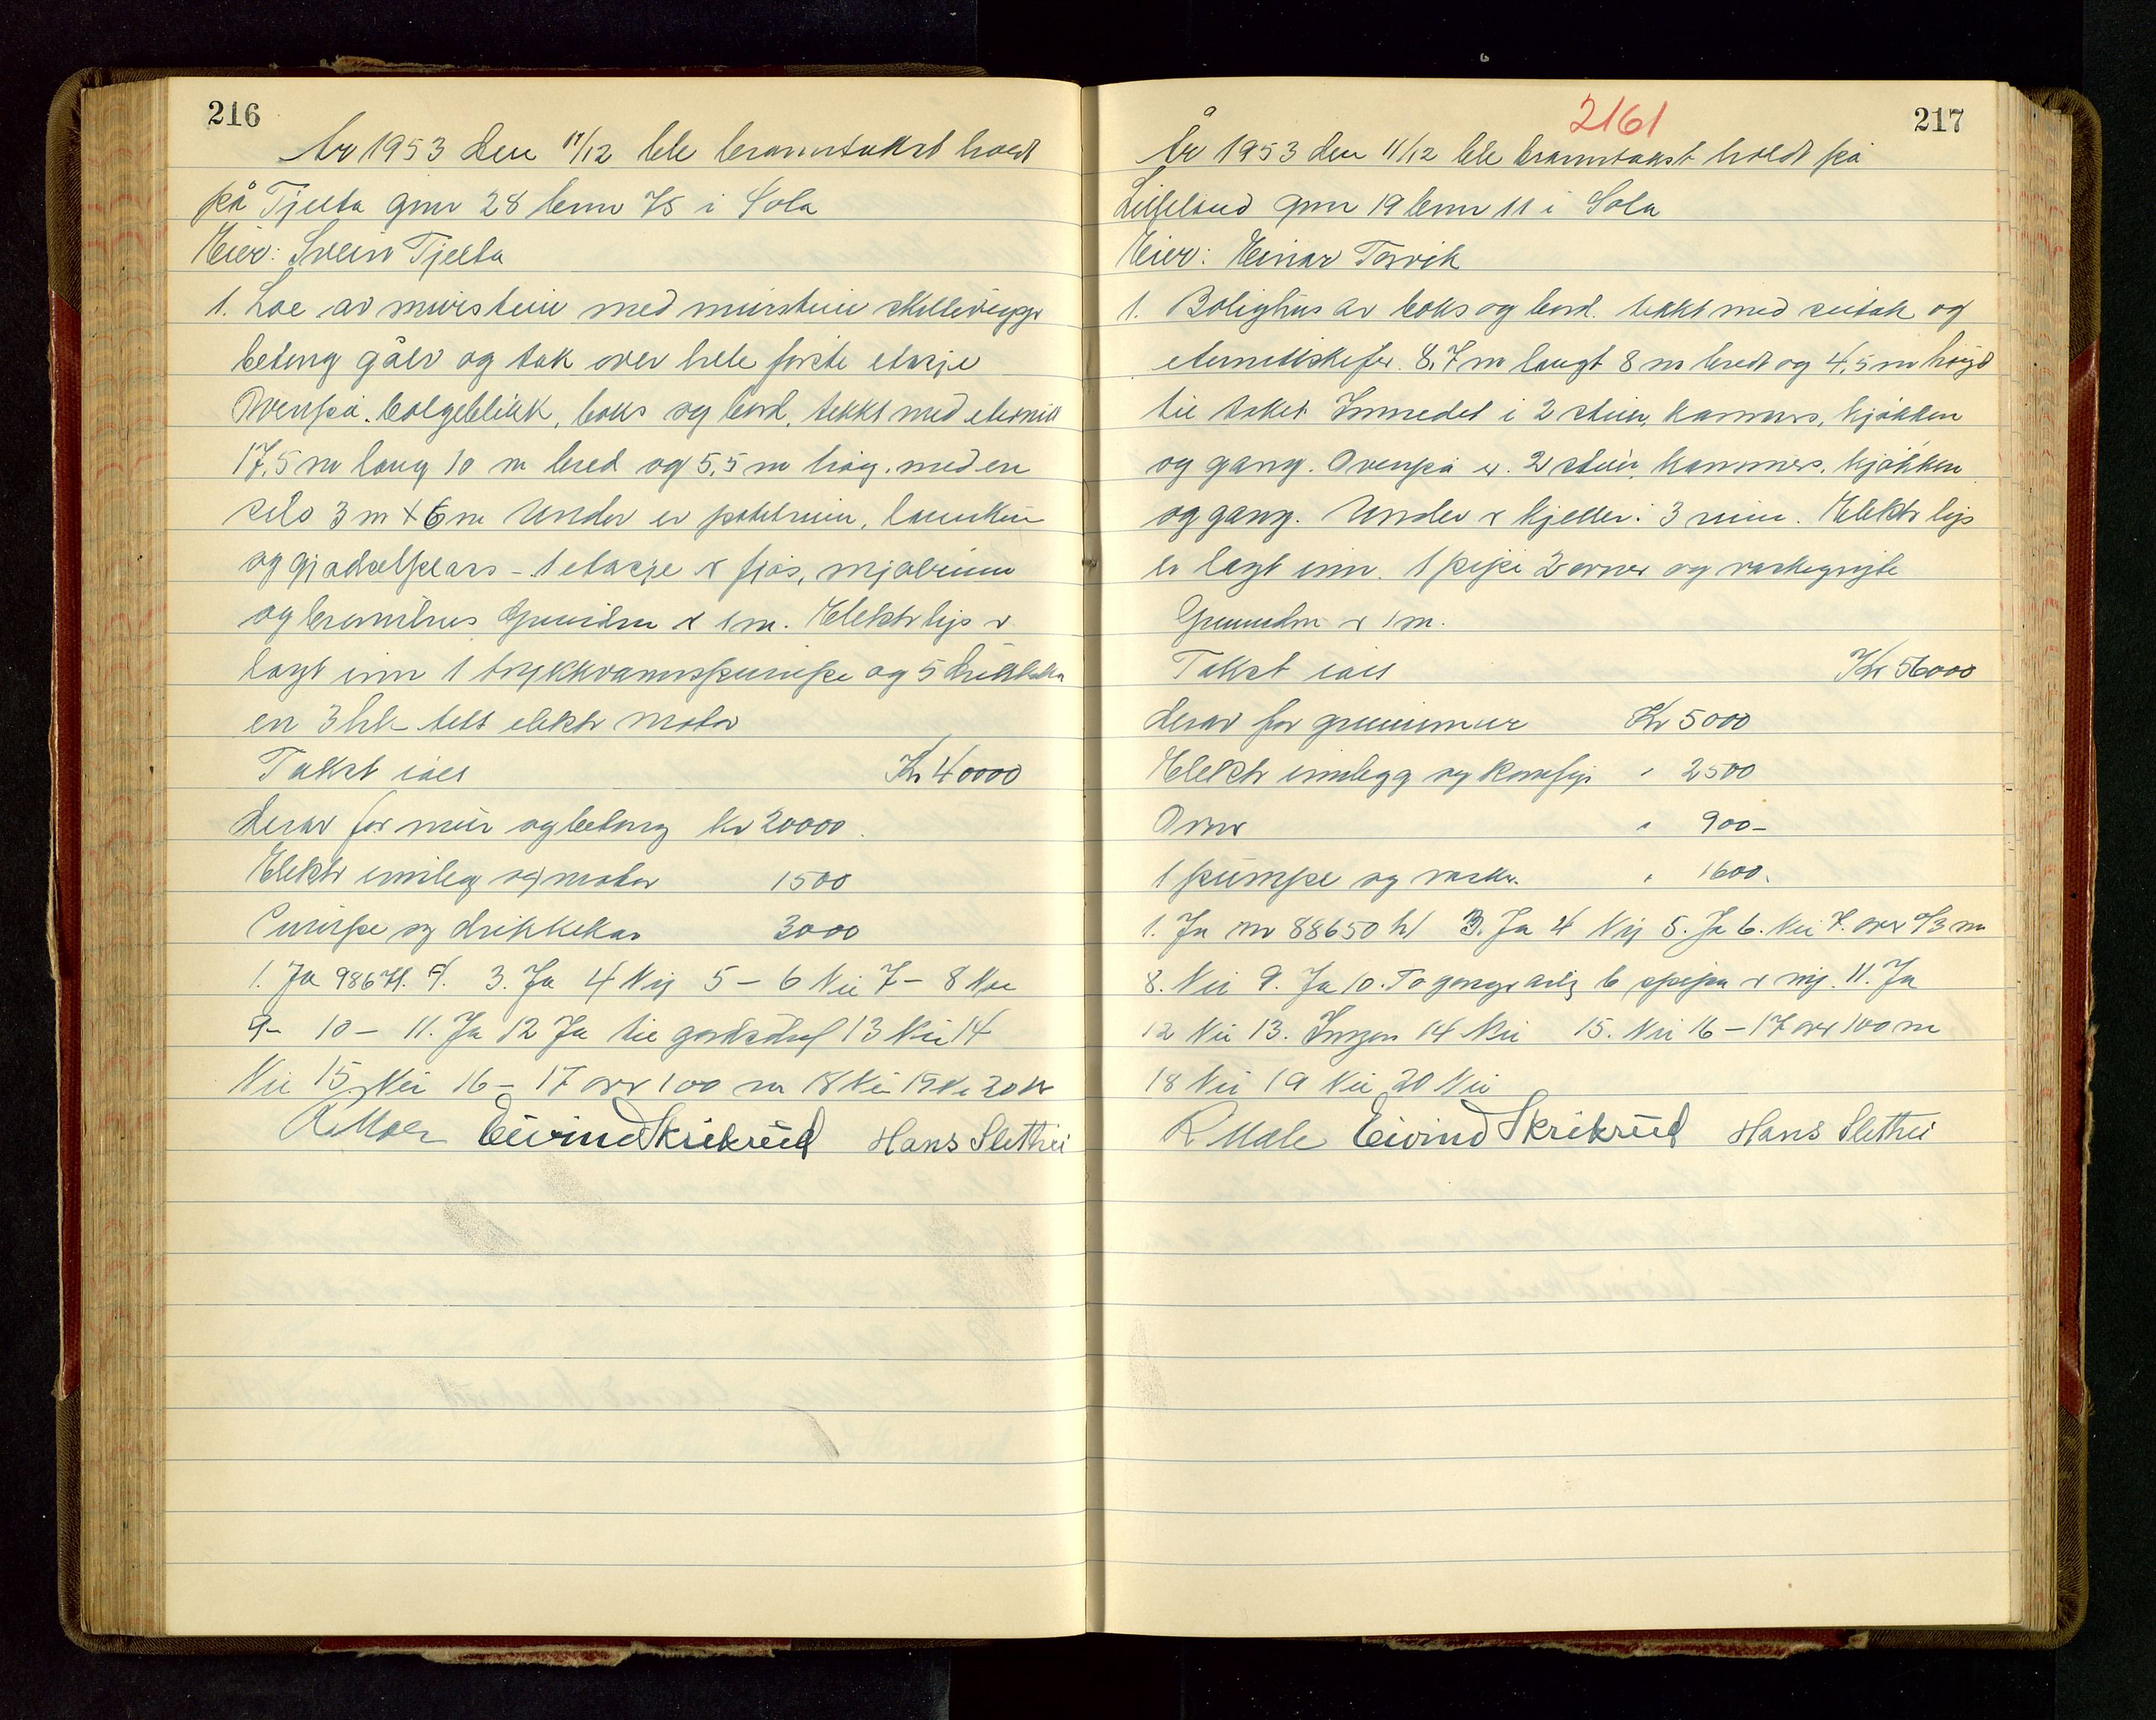 216
År 1953 den 11/12 ble branntakst holdt
på Tjelta gnr 28 bnr 75 i Sola
Eier: Svein Tjelta
1. Loe av murstein med murstein skillevegger
betong gålv og tak over hele første etasje
Ovenpå bølgeblikk, boks og bord, tekkt med eternitt
17,5 m lang 10 m bred og 5,5 m høg, med en
silo 3 m x 6 m Under er potetrum, landkum
og gjødselplass - 1 etasje er fjøs, mjølrum
og brønnhus Grunden er 1 m. Elektr lys er
lagt inn 1 trykkvannspumpe og 5 drikkekar
en 3 hk tett elektr motor
Takst ialt Kr 40000
Derav for mur og betong kr 20000
Elektr innlegg og motor 1500
Pumpe og drikkekar 3000
1. Ja 98671. F. 3. Ja 4 Nij 5 - 6 Nei 7 - 8 Noe
9 - 10 - 11. Ja 12 Ja til gardsdrif 13 Nei 14
Nei 15 Nei 16 - 17 over 100 m 18 Nei 19 Nei 20 N
R Mæle Eivind Skrikrud Hans Slethei
2161
217
År 1953 den 11/12 ble branntakst holdt på
gnr 19 bnr 11 i Sola
Eier: Einar Torvik
1. Bolighus av boks og bord. tekkt med sutak og
eternittskifer. 8,7 m langt 8 m bredt og 4,5 m høgt
til taket. Innredet i 2 stuer, kammers, kjøkken
og gang. Ovenpå er 2 stuer, kammers, kjøkken
og gang. Under er kjeller i 3 rum. Elektr lys
er lagt inn. 1 pipe 2 ovner og vaskegryte
Grunden er 1 m.
Takst ialt Kr 56000
derav for grunnmur Kr 5000
Elektr innlegg og komfyr " 2500
Ovner " 900-
1 pumpe og vasker " 1600.
1. Ja nr 88650 hl 3. Ja 4 Nij 5. Ja 6. Nei 7. over 2/3 m
8. Nei 9. Ja 10. To ganger årlig b pipa er nij. 11. Ja
12 Nei 13. Ingen 14 Nei 15. Nei 16 - 17 over 100 m
18 Nei 19 Nei 20 Nei
R Mæle Eivind Skrikrud Hans Slethei